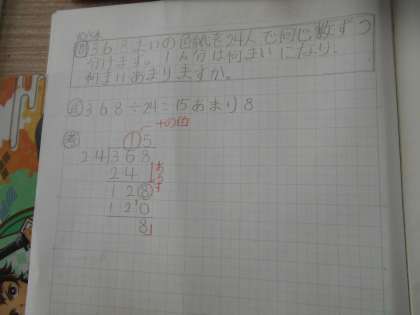 問 368まいの色紙を24人で同じ数ずつ
分けます。1人分は何まいになり、
何まいあまりますか。
式 368÷24=15あまり8
十の位
筆
15
24)368
24
128
120
8